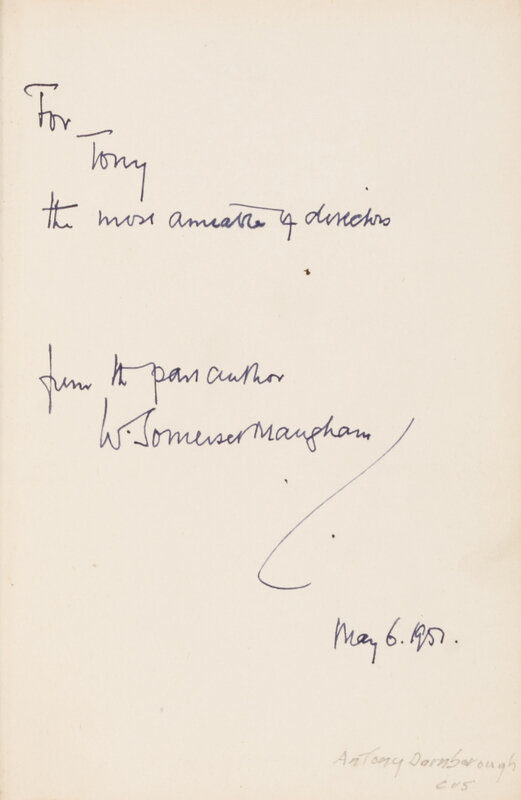 For
Tony
the most amiable of directors
from the poor author
W. Somerset Maugham
May 6. 1951.
Antony Darnborough